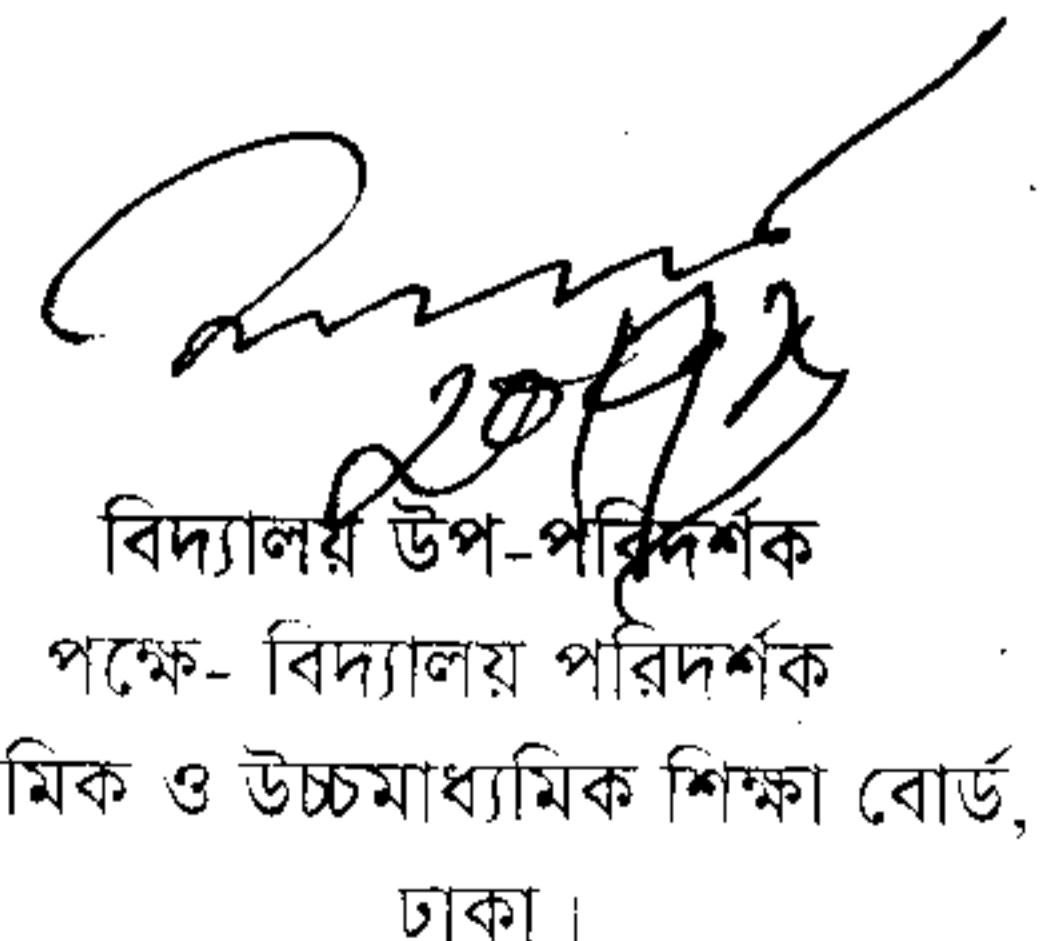 বিদ্যালয় উপ-পরিদর্শক
পক্ষে- বিদ্যালয় পরিদর্শক
মিক ও উচ্চমাধ্যমিক শিক্ষা বোর্ড,
ঢাকা ।